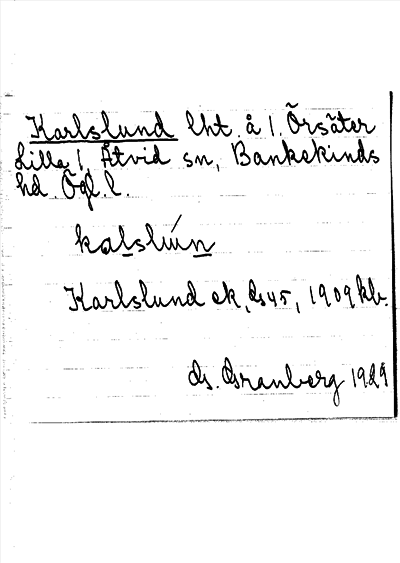 Karlslund lht. å 1. Örsäter
Lilla 1, Åtvid sn, Bankekinds
hd. Ögl. l.
kalslún
Karlslund ek, Gs 45, 1909 kb.
Gs. Granberg 1929